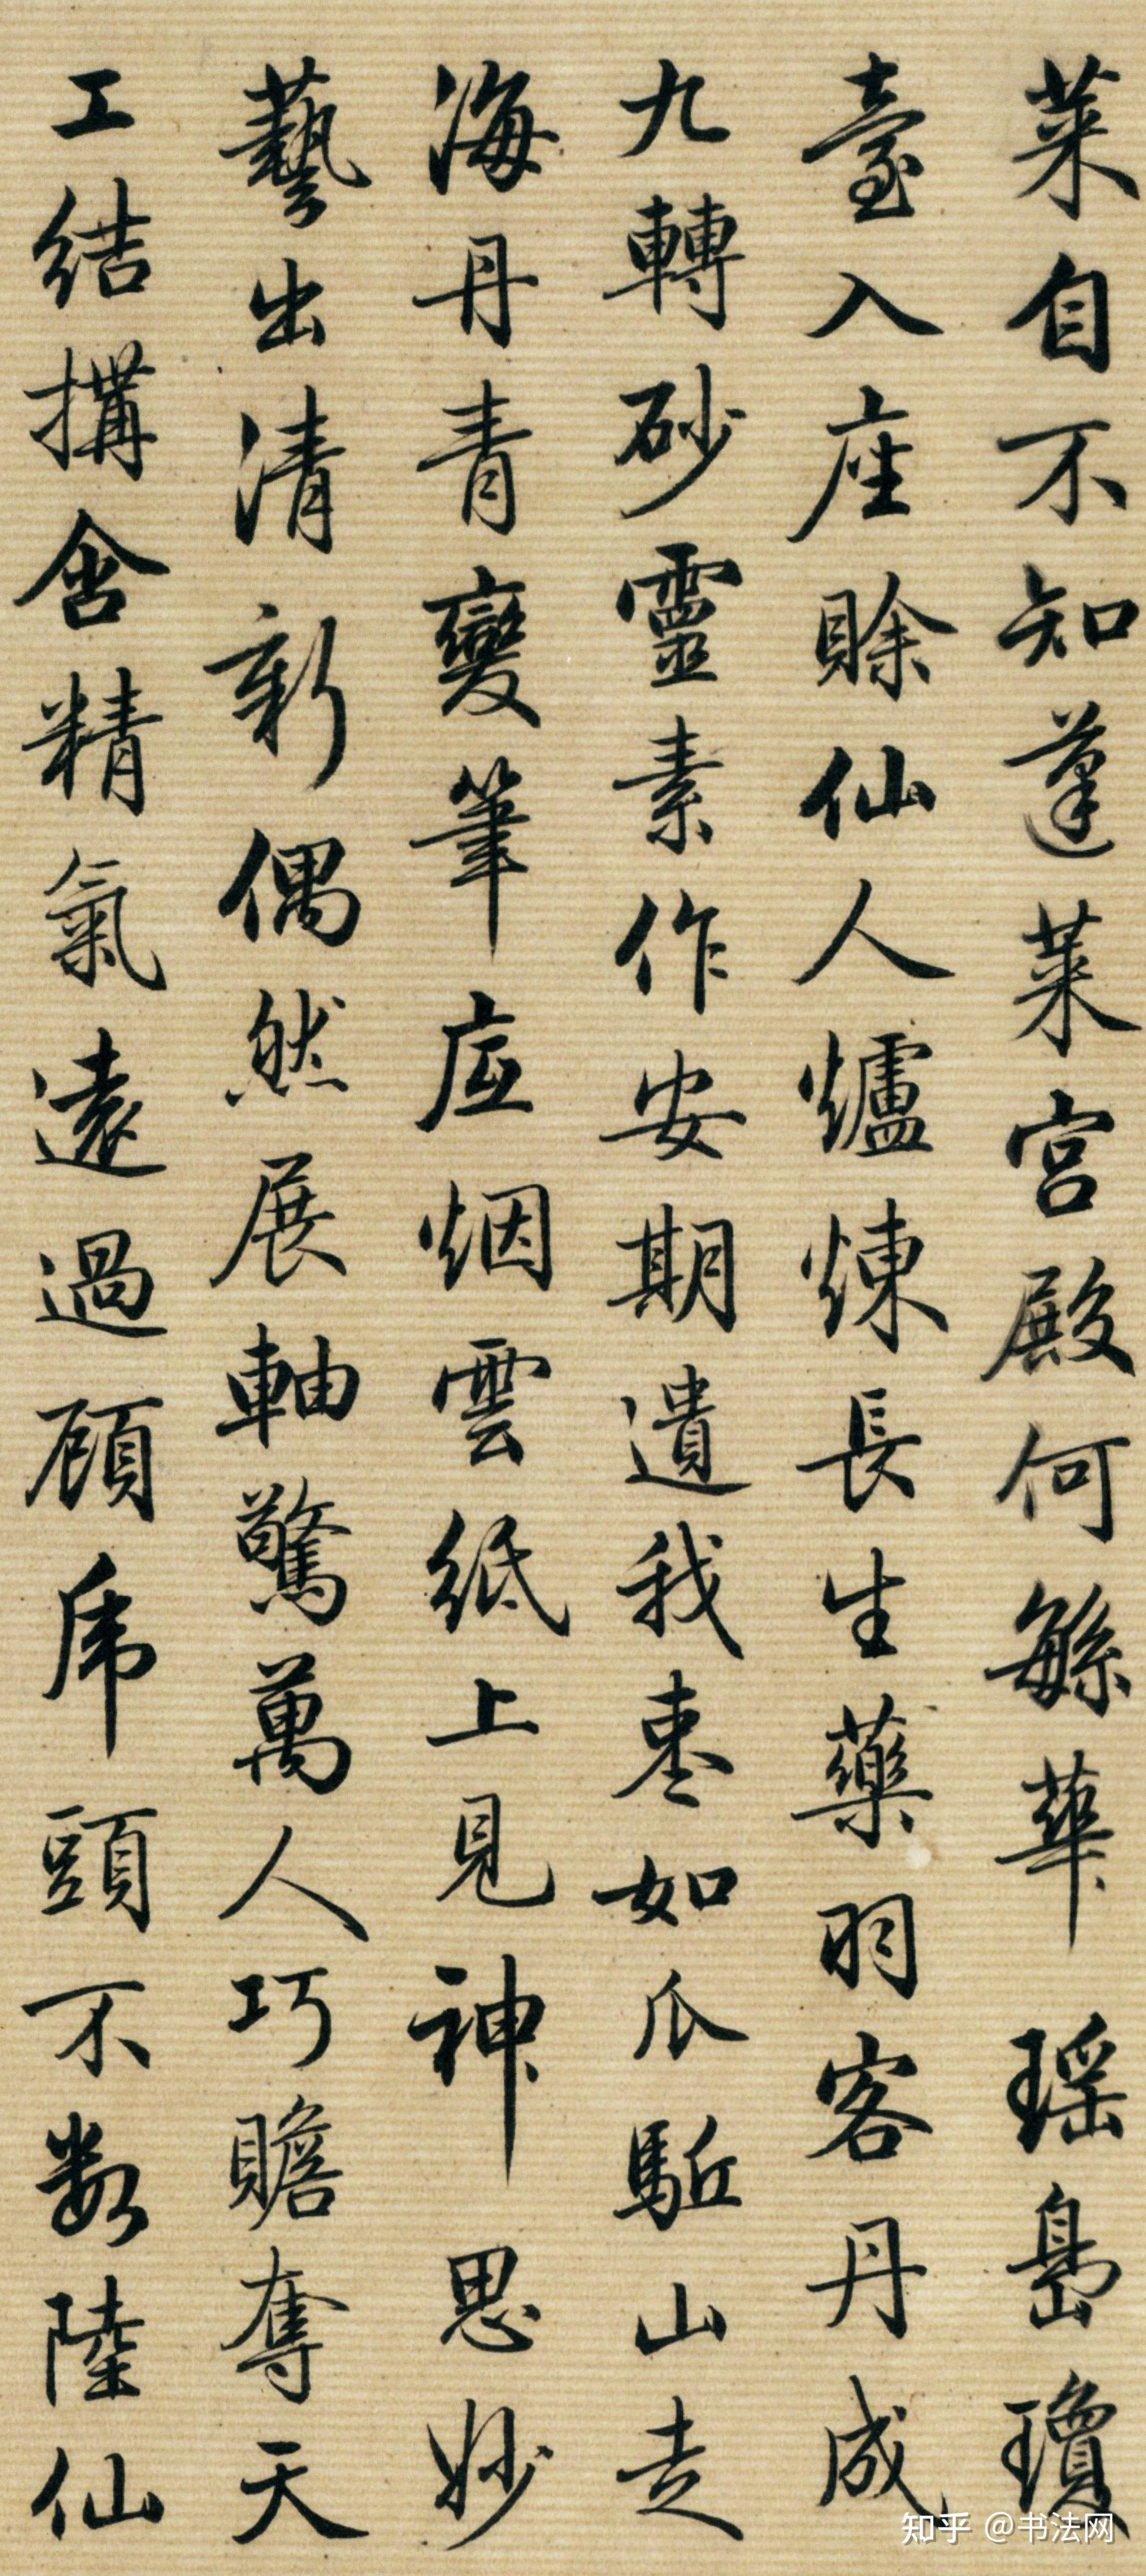 萊自不知蓬萊宮殿何繁華瑶島瓊
臺入座賖仙人爐煉長生藥羽客丹成
九轉砂靈素作安期遺我枣如瓜駈山走
海丹青變筆底烟雲紙上見神思妙
藝出清新偶然展軸驚萬人巧贍奪天
工结搆含精氣遠過顾虎頭不数陸仙
知乎 @书法网